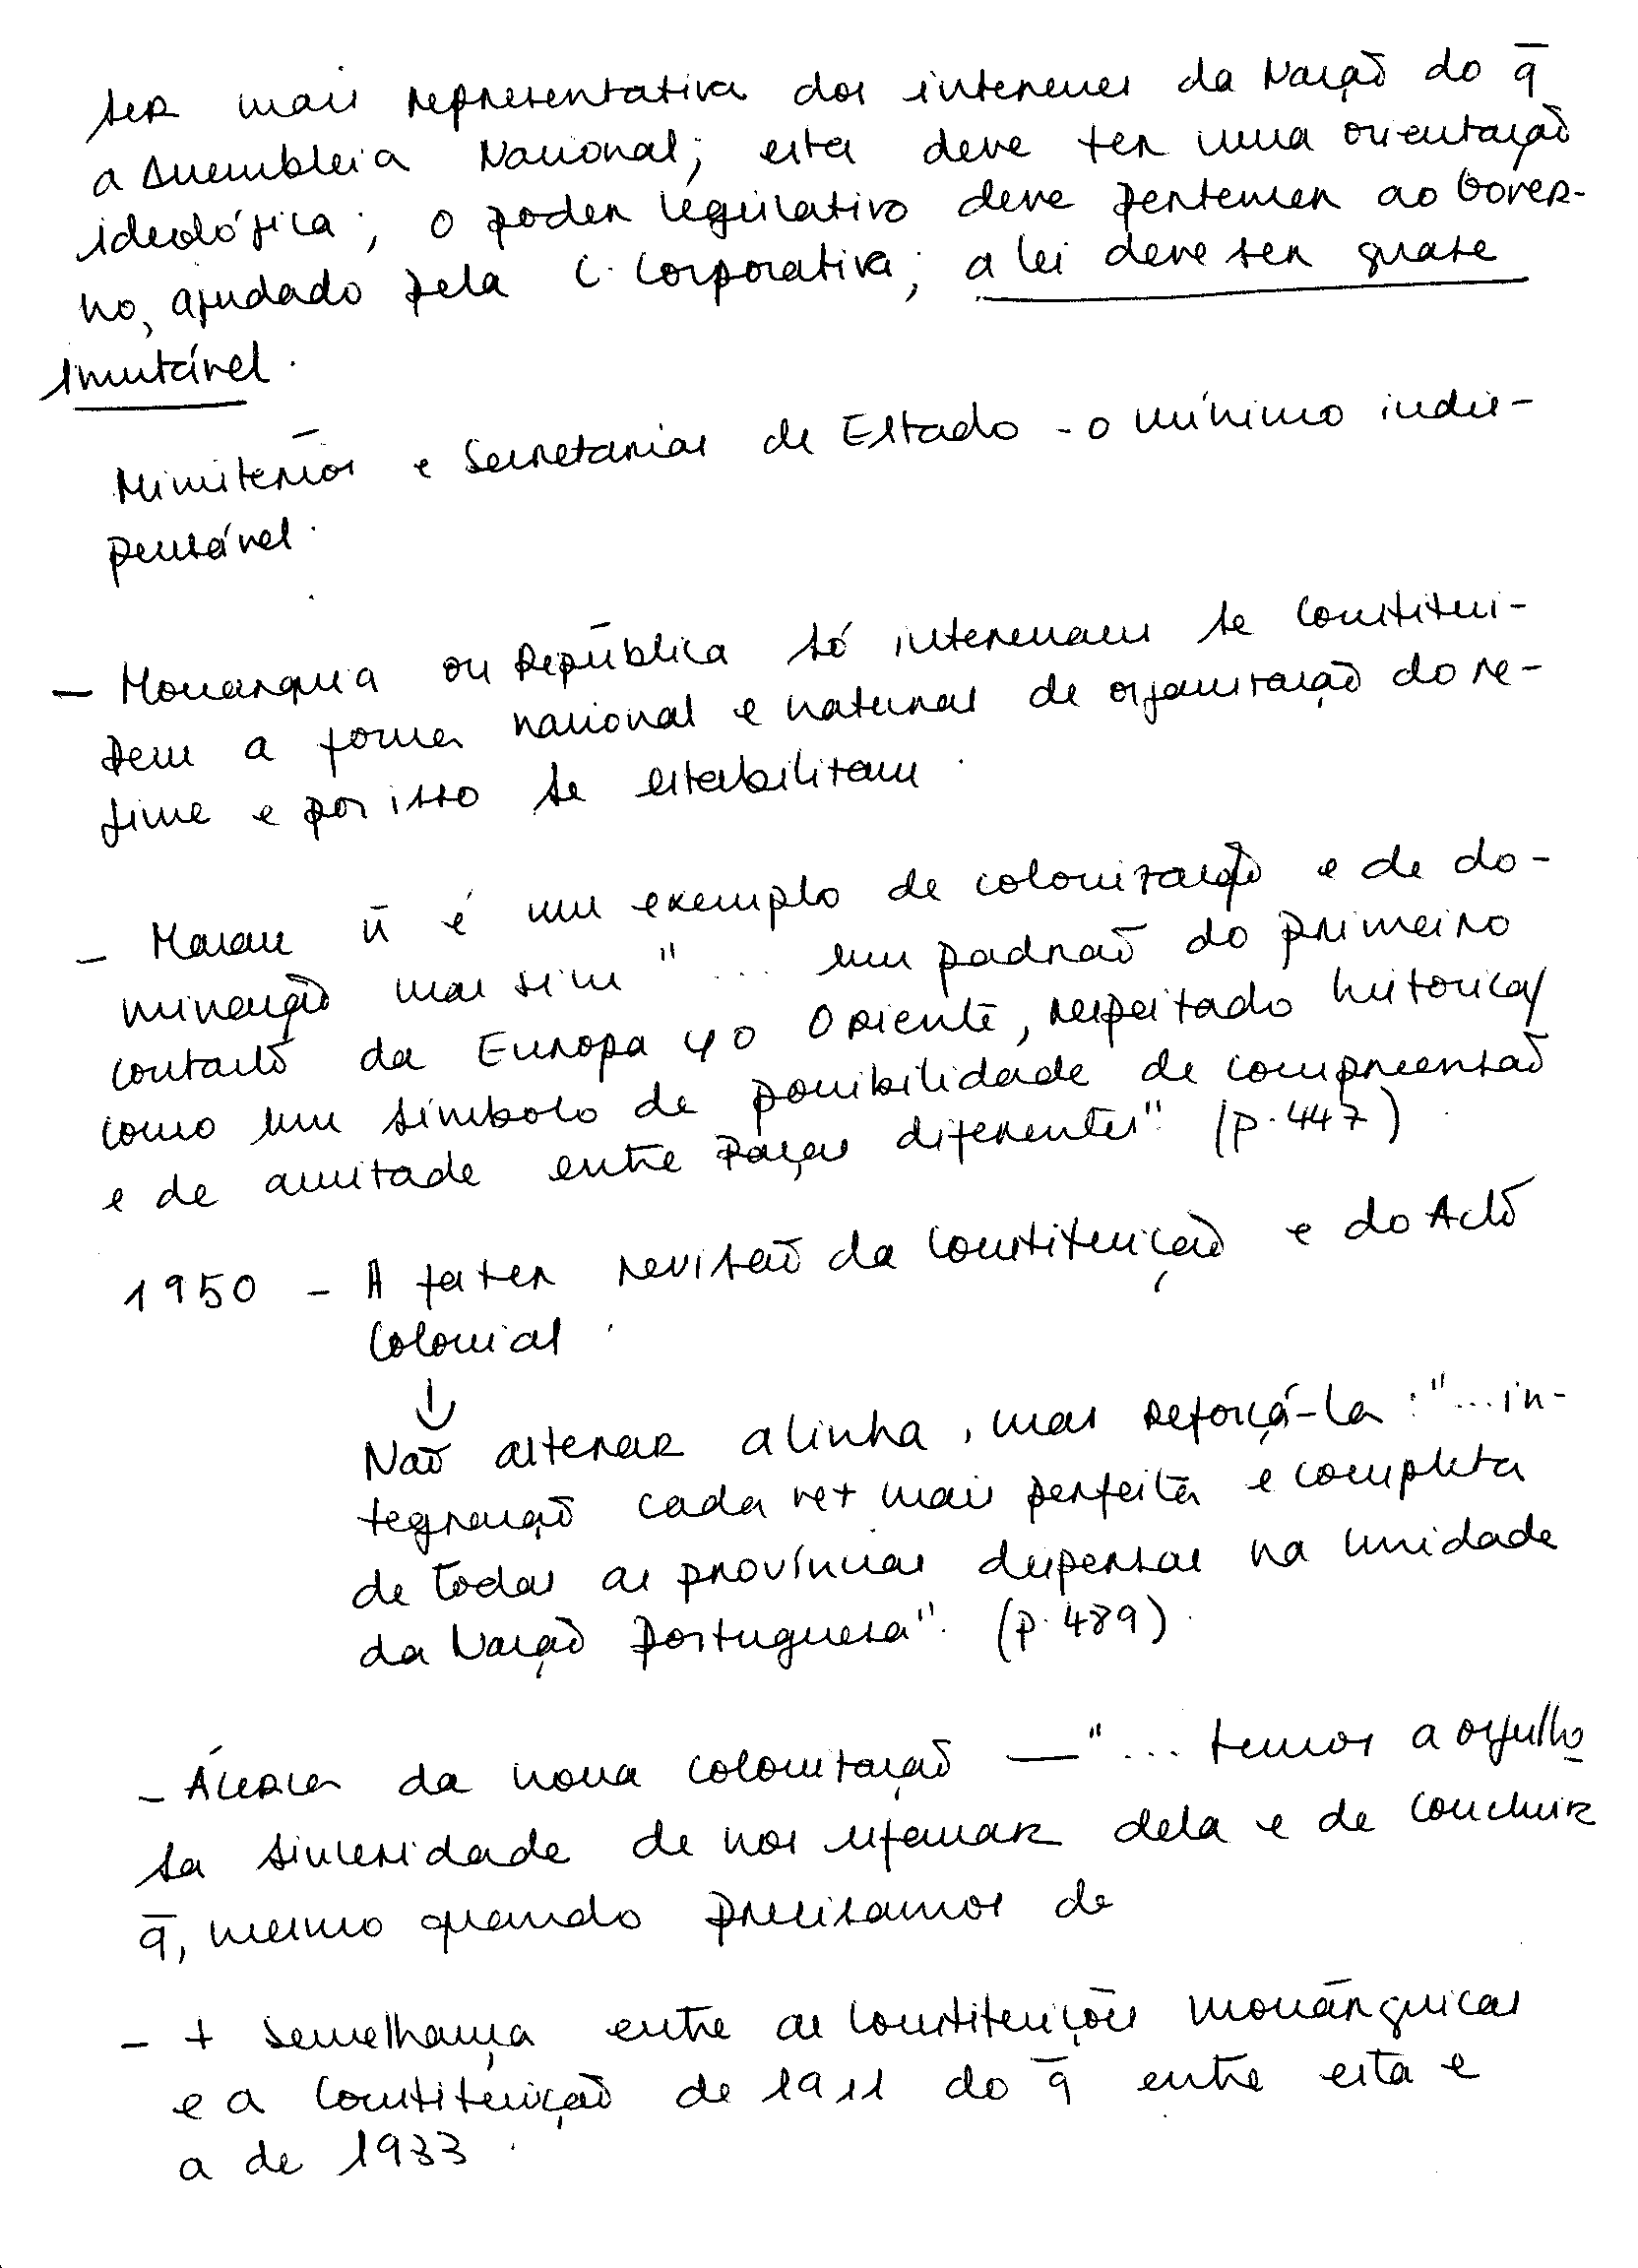 ser mais representativa dos interesses da Nação do q̄
a Assembleia Nacional; esta deve ter uma orientação
ideológica; o poder legislativo deve pertencer ao Gover-
no, ajudado pela C. Corporativa; a lei deve ser quase
imutável.
Ministérios e Secretarias de Estado - o mínimo indis-
pensável.
- Monarquia ou República só interessam se constitui-
rem a forma nacional e natural de organização do re-
gime e por isso se estabilizam.
- Macau n̄ é um exemplo de colonização e de do-
minação mas sim "... um padrão do primeiro
contacto da Europa c/ o Oriente, respeitado historica/
como um símbolo de possibilidade de compreensão
e de amizade entre raças diferentes". (p. 447)
1950 - A fazer revisão da Constituição e do Acto
Colonial.
↓
Não alterar a linha, mas reforçá-la: "... in-
tegração cada vez mais perfeita e completa
de todas as províncias dispersas na unidade
da Nação Portuguesa". (p. 489)
- Àcerca da nova colonização — "... temos a orgulho
sa sinceridade de nos ufanar dela e de concluir
q̄, mesmo quando precisamos de
- + semelhança entre as Constituições monárquicas
e a Constituição de 1911 do q̄ entre esta e
a de 1933.